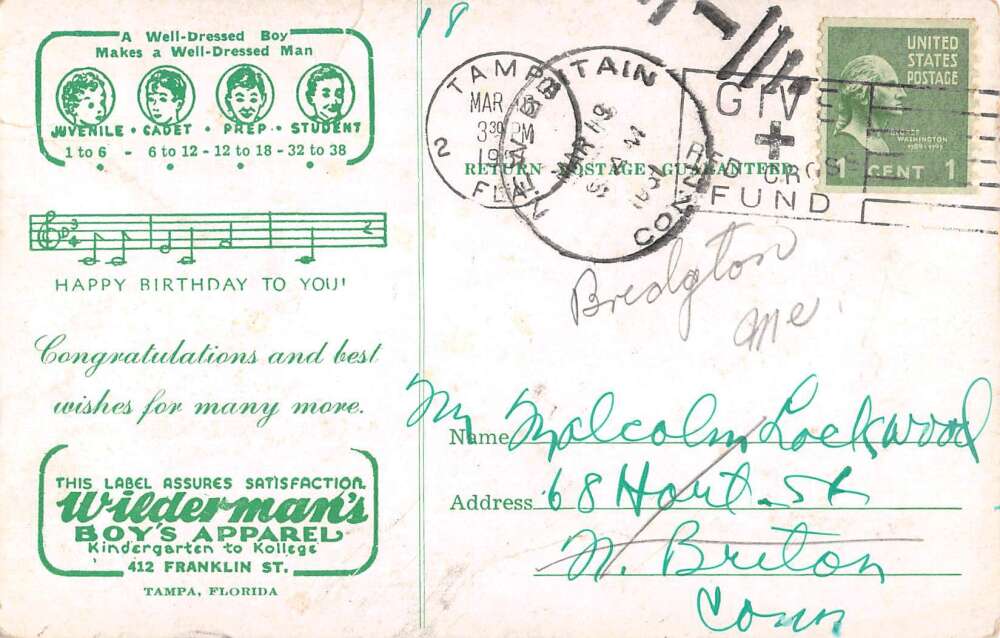 A Well-Dressed Boy
Makes a Well-Dressed Man
JUVENILE • CADET • PREP • STUDENT
1 to 6 - 6 to 12 - 12 to 18 - 32 to 38
HAPPY BIRTHDAY TO YOU!
Congratulations and best
wishes for many more.
THIS LABEL ASSURES SATISFACTION
Wilderman's
BOY'S APPAREL
Kindergarten to Kollege
412 FRANKLIN ST.
TAMPA, FLORIDA
18
TAMPA
MAR
3 30 PM
2 FLA.
NEW BRITAIN
CONN
MAR
GIVE
RED CROSS
FUND
UNITED
STATES
POSTAGE
GEORGE
WASHINGTON
1789-1797
1 CENT 1
RETURN POSTAGE GUARANTEED
Bredgton
Me.
Name Mr Malcolm Lockwood
Address 68 Hart St
N. Briton
Conn